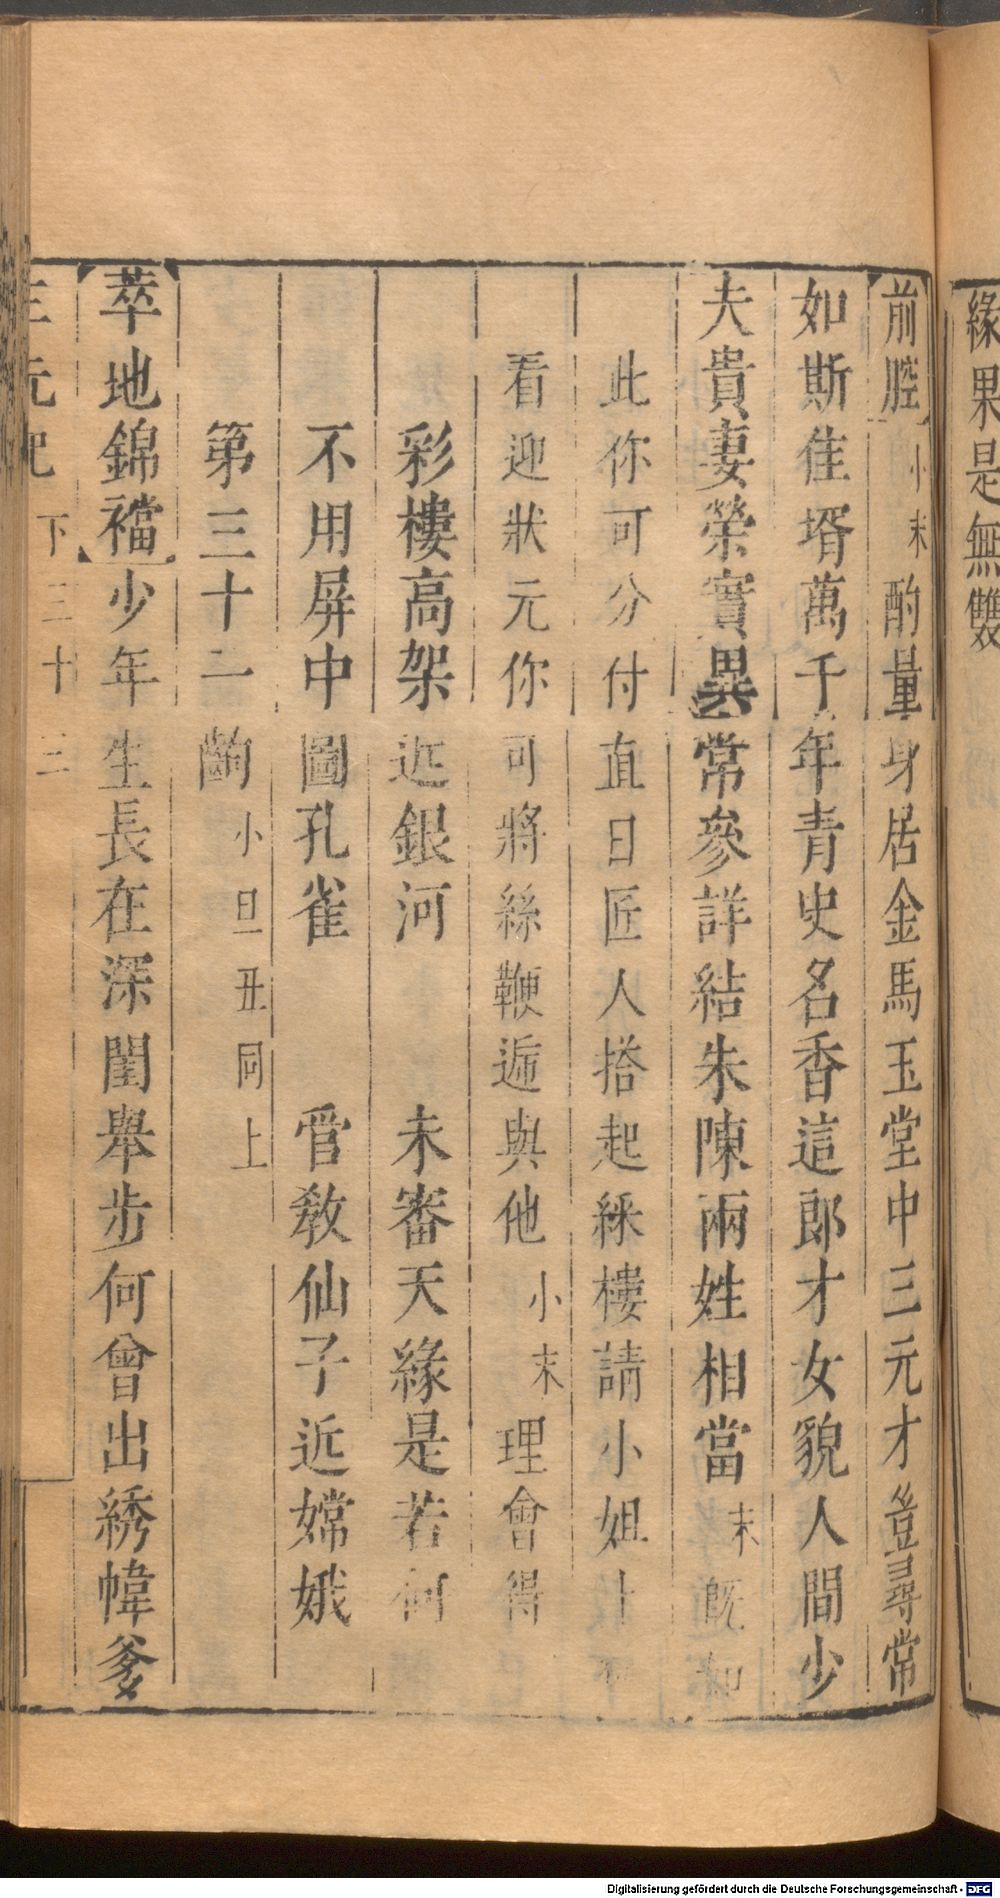 緣果是無雙
【前腔】小末酌量身居金馬玉堂中三元才豈尋常
如斯佳壻萬千年青史名香這郎才女貌人間少
夫貴妻榮實異常參詳結朱陳兩姓相當末既如
此你可分付直日匠人搭起綵樓請小姐上
看迎狀元你可將絲鞭逓與他小末理會得
彩樓高架近銀河 未審天緣是若何
不用屏中圖孔雀 管教仙子近嫦娥
第三十二齣小旦丑同上
【萃地錦襠】少年生長在深閨舉步何曾出綉幃爹
三元記 下 三十三
Digitalisierung gefördert durch die Deutsche Forschungsgemeinschaft - DFG